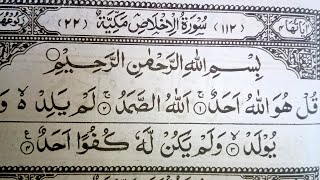 اٰیَاتُهَا ٤ (١١٢) سُوْرَةُ الْاِخْلَاصِ مَكِّیَّةٌ (٢٢)
بِسْمِ اللّٰهِ الرَّحْمٰنِ الرَّحِیْمِ
قُلْ هُوَ اللّٰهُ اَحَدٌ ١ اَللّٰهُ الصَّمَدُ ٢ لَمْ یَلِدْ ٥ وَ
یُوْلَدْ ٣ وَلَمْ یَكُنْ لَّهٗ كُفُوًا اَحَدٌ ٤